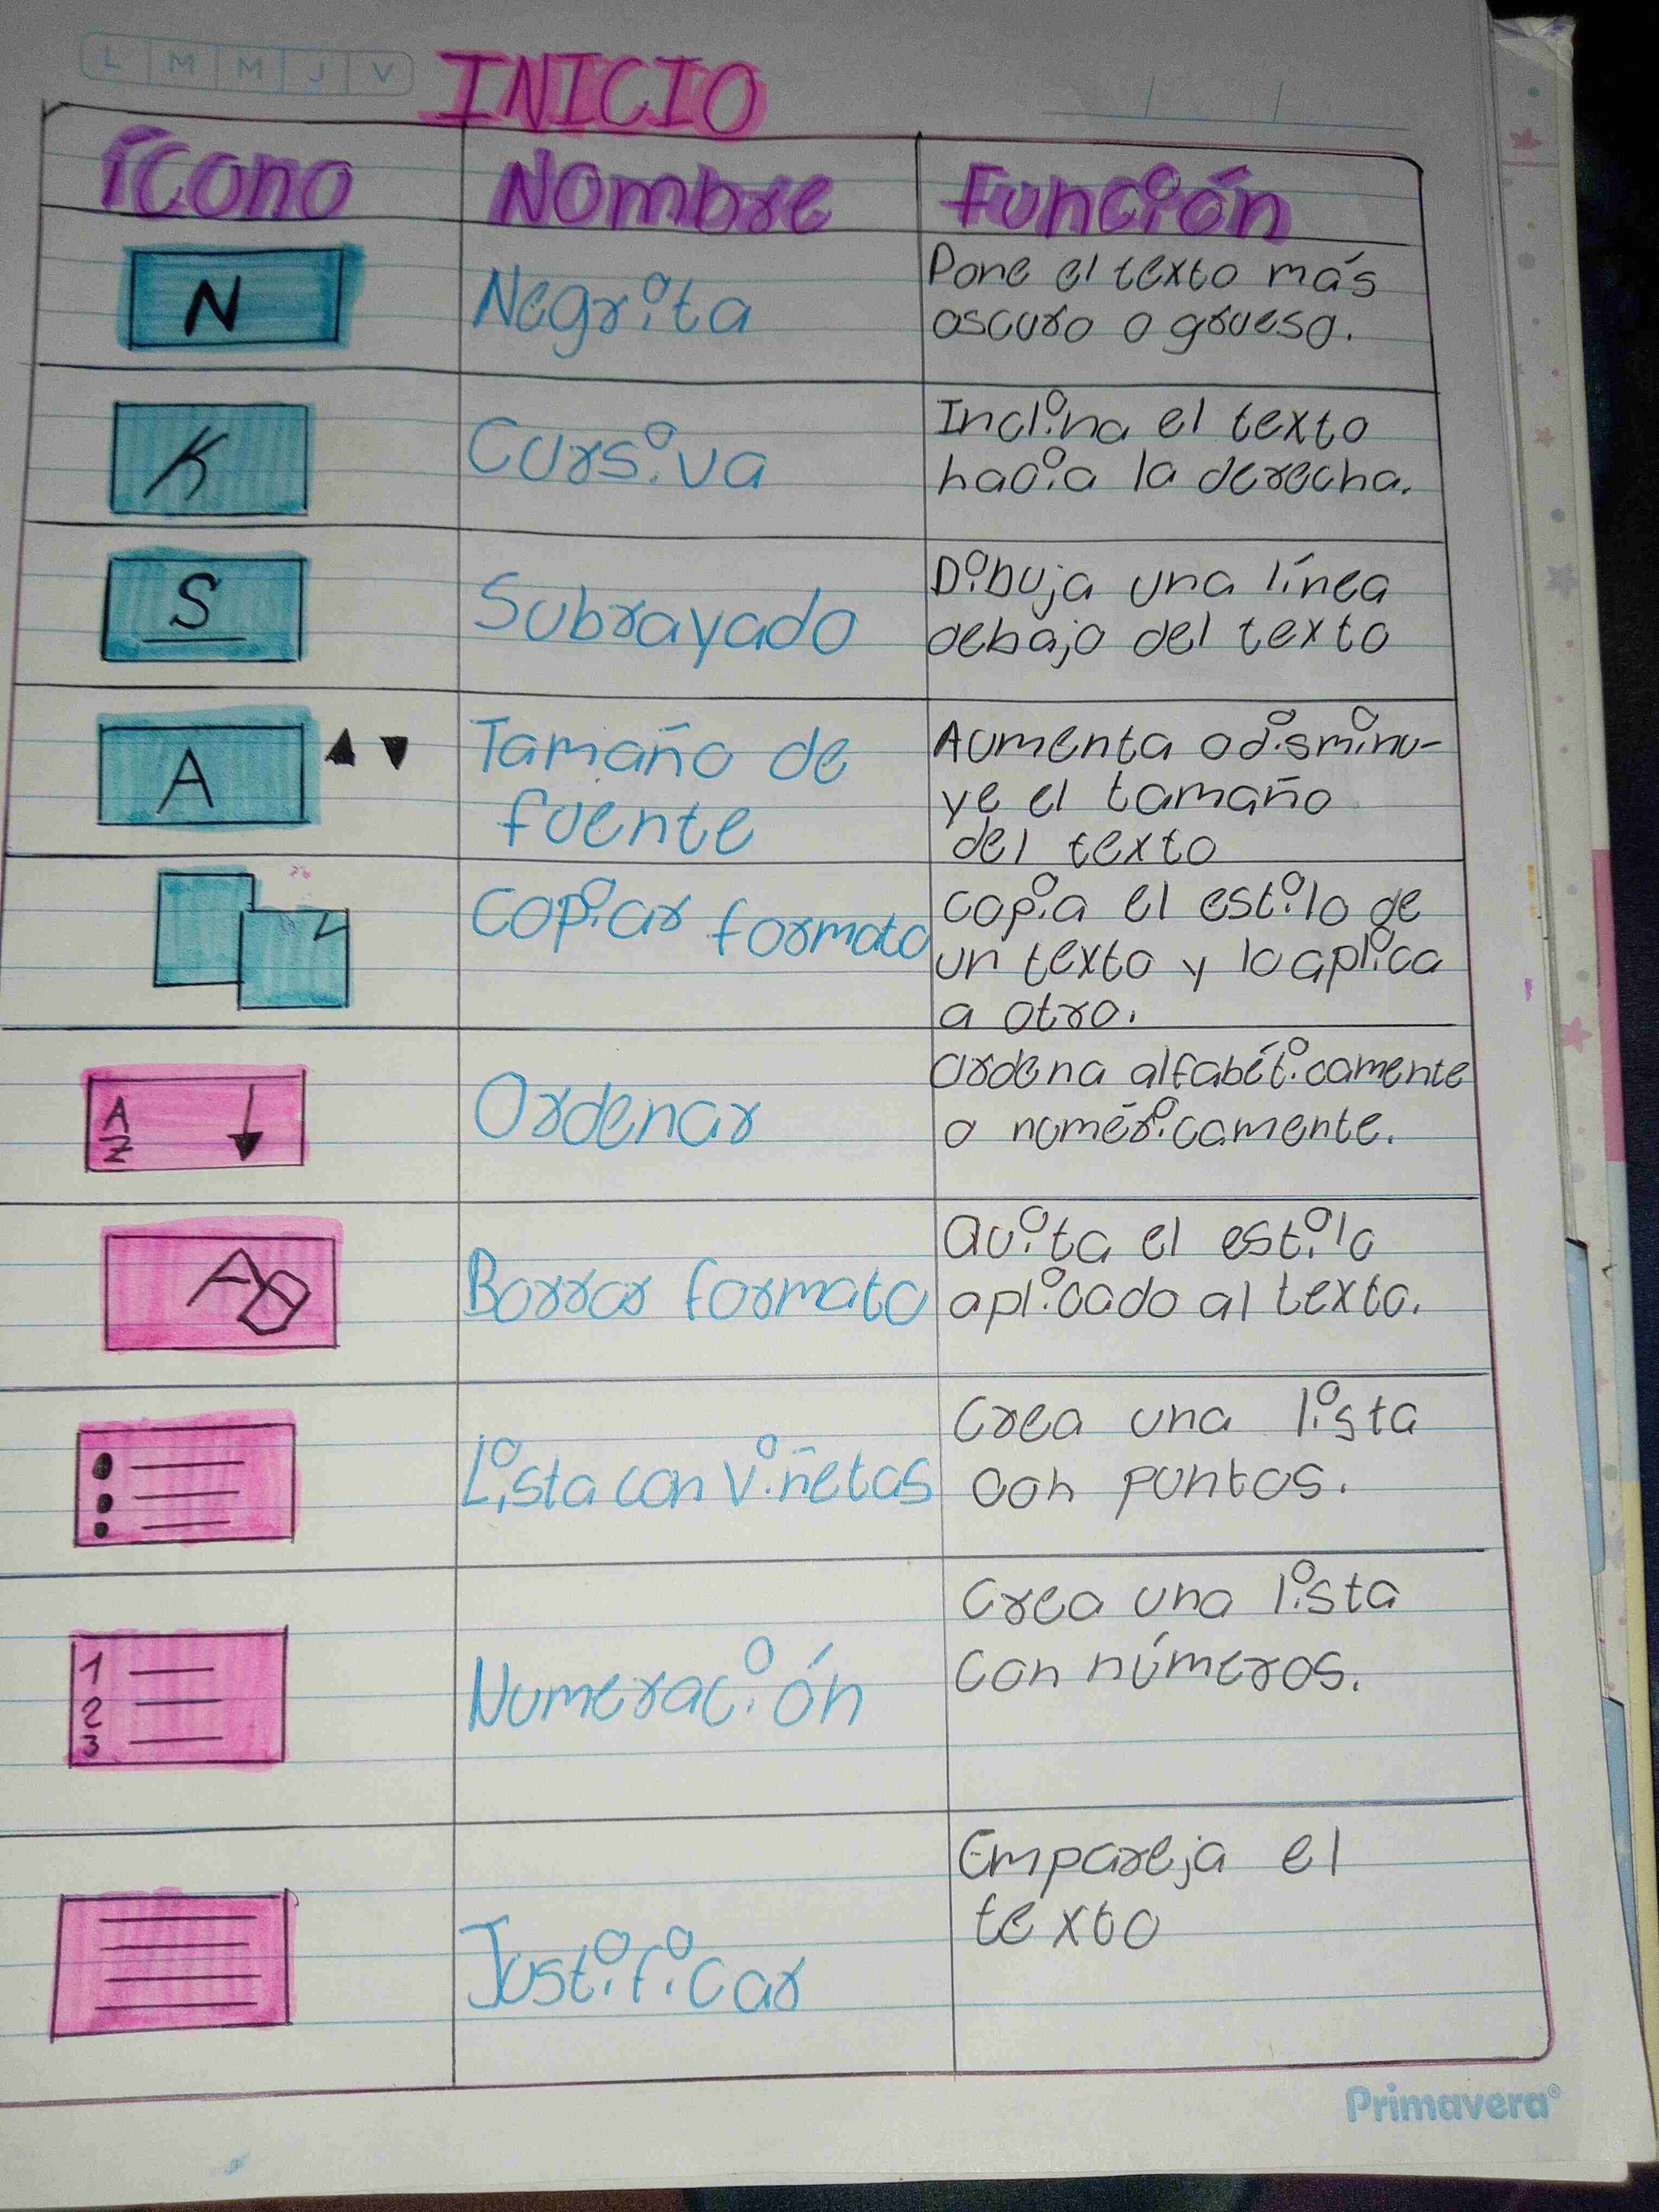 L M M J V
INICIO
ícono Nombre Función
N
Negrita
Pone el texto más
oscuro o grueso.
K
Cursiva
Inclina el texto
hacia la derecha.
S
Subrayado
Dibuja una línea
debajo del texto
A
Tamaño de
fuente
Aumenta o disminu-
ye el tamaño
del texto
Copiar formato
copia el estilo de
un texto y lo aplica
a otro.
A
Z
Ordenar
Ordena alfabéticamente
o numéricamente.
A
Borrar formato
Quita el estilo
aplicado al texto.
Lista con viñetas
Crea una lista
con puntos.
1
2
3
Numeración
Crea una lista
con números.
Justificar
Empareja el
texto
Primavera®